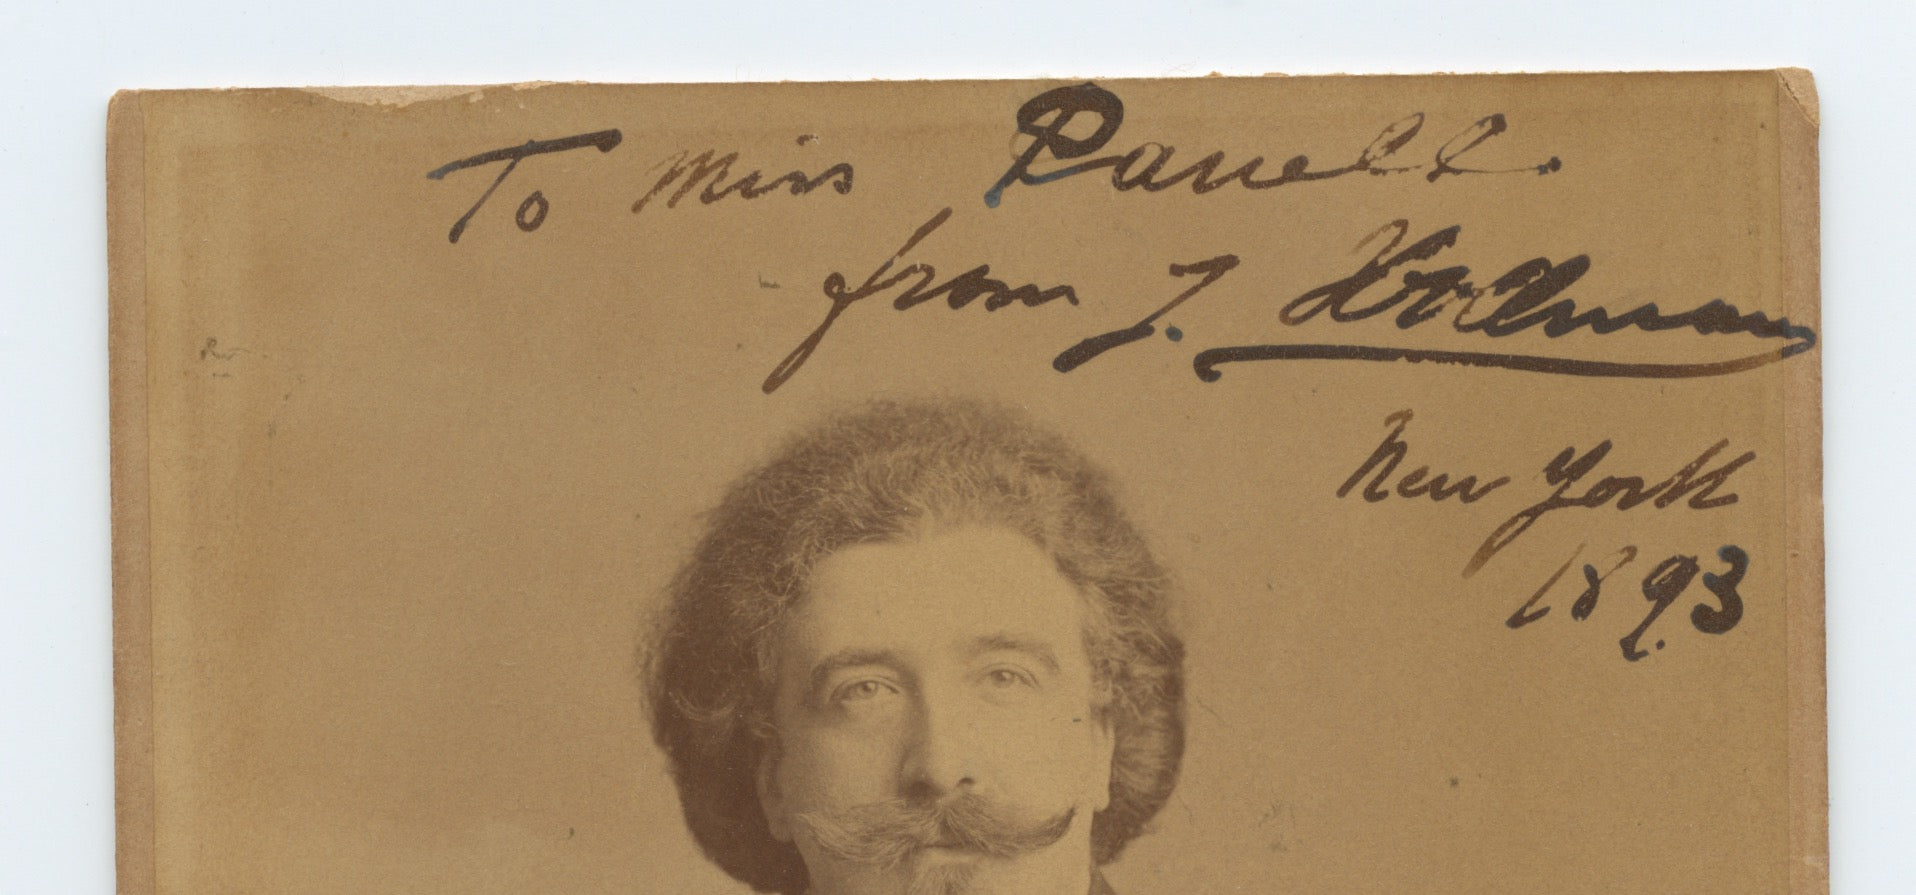 To Miss
from J. Hollman
New York
1893